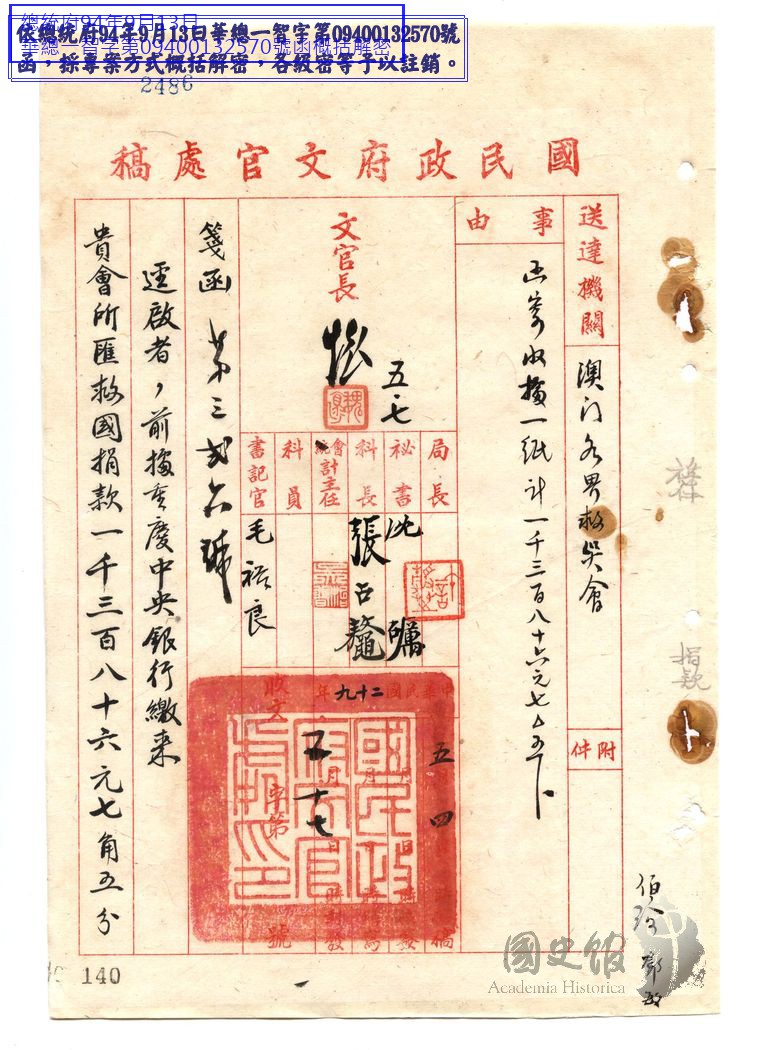 總統府94年9月13日
華總一智字第09400132570號函概括解密
依總統府94年9月13日華總一智字第09400132570號
函，採專案方式概括解密，各級密等予以註銷。
2486
國民政府文官處稿
送達機關
澳门各界救災會
附件
事由
函寄收據一紙計一千三百八十六元七角五分
文官長
五.七
局長
祕書
科長
會計主任
科員
書記官
沈
張
毛
良
中華民國二十九年
五 四
五 十七
收文
字第
號
國民政府文官處印
箋函 第三
號
逕啟者，前據重慶中央銀行繳來
貴會所匯救國捐款一千三百八十六元七角五分
捐款
140
國史館
Academia Historica